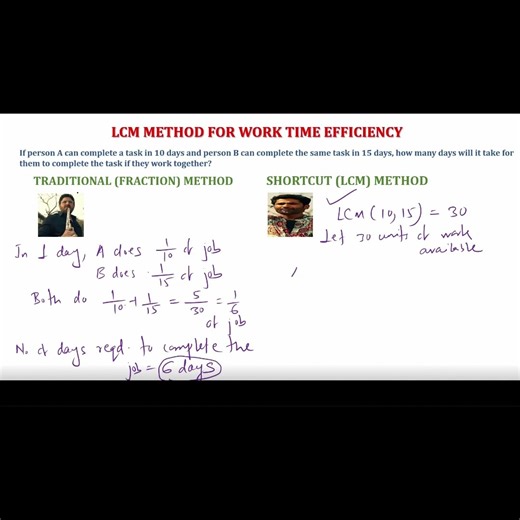 LCM METHOD FOR WORK TIME EFFICIENCY
If person A can complete a task in 10 days and person B can complete the same task in 15 days, how many days will it take for
them to complete the task if they work together?
TRADITIONAL (FRACTION) METHOD
In 1 day, A does 1/10 of job
B does 1/15 of job
Both do 1/10 + 1/15 = 5/30 = 1/6
of job
No. of days reqd. to complete the
job = 6 days
SHORTCUT (LCM) METHOD
LCM (10,15) = 30
Let 30 units of work
available